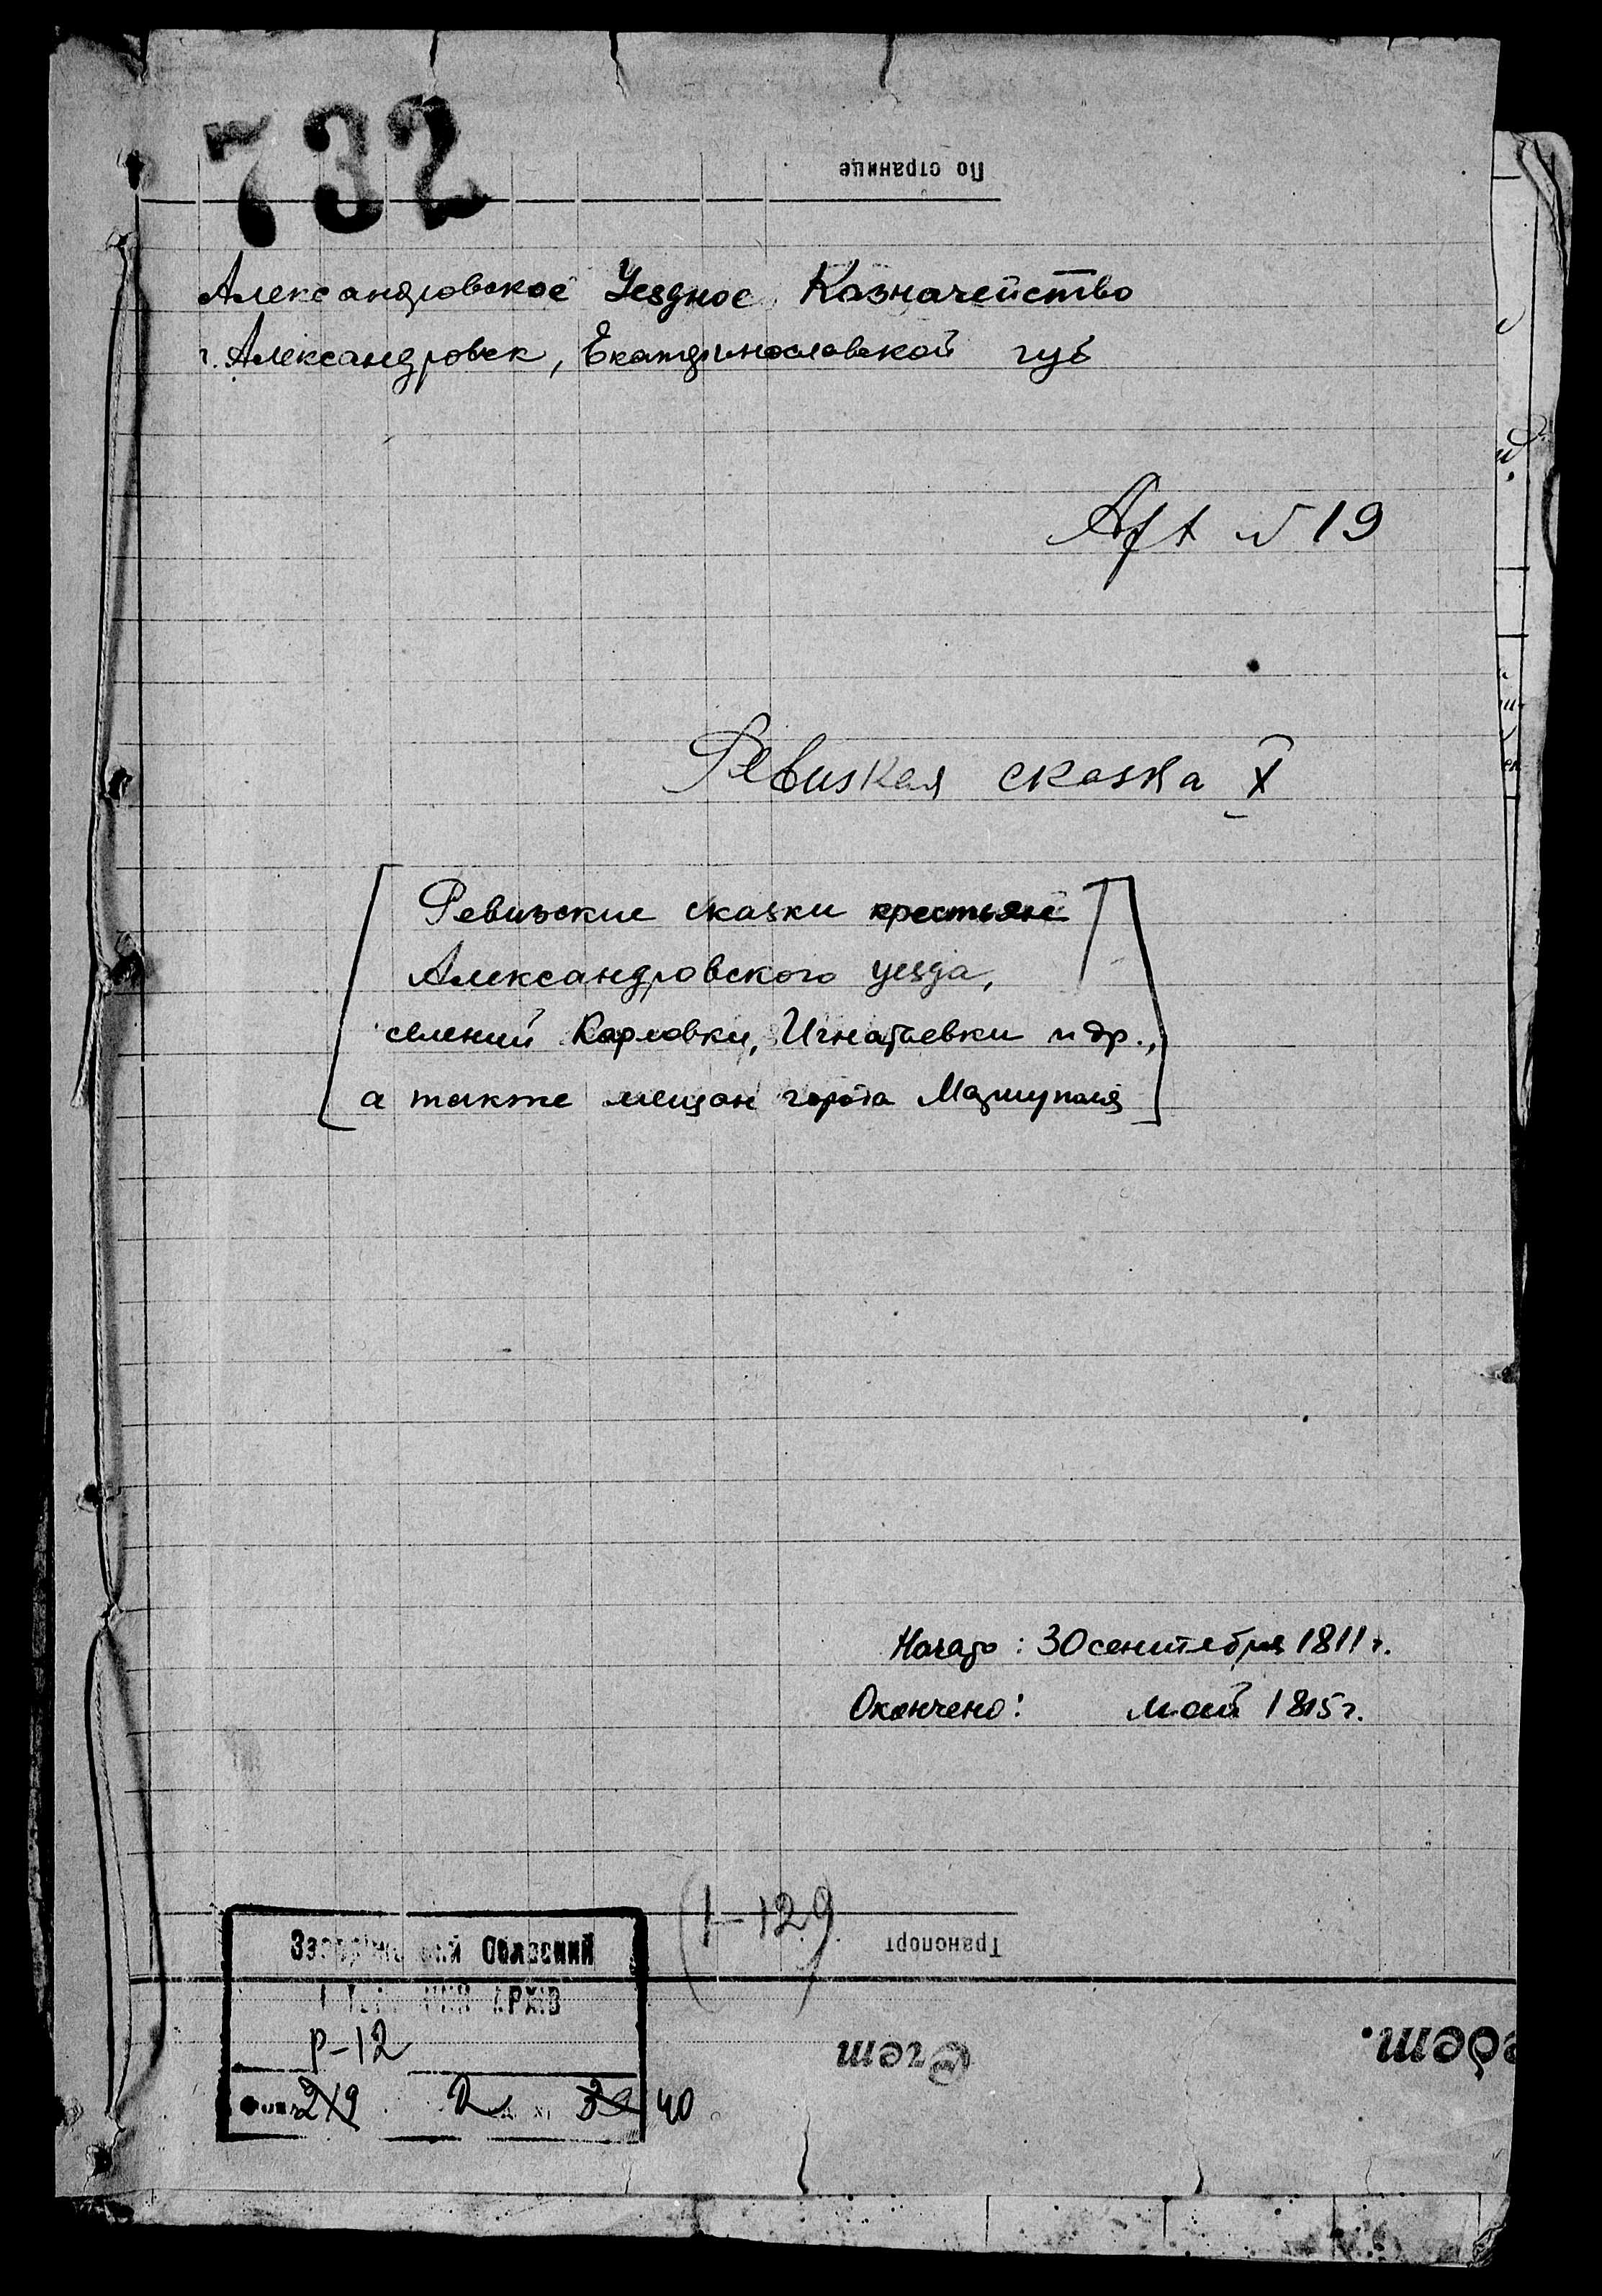 732
По странице
Александровское Уездное Казначейство
г. Александровск, Екатеринославской губ
Aft № 19
Ревизкая сказка X
Ревизские сказки крестьян
Александровского уезда,
селений Карловки, Игнатьевки и др.,
а также мещан города Мариуполя
Начато: 30 сентября 1811 г.
Окончено: май 1815 г.
(1-129)
Транспорт
Обласний
АРХІВ
Р-12
219 2 40
Счет